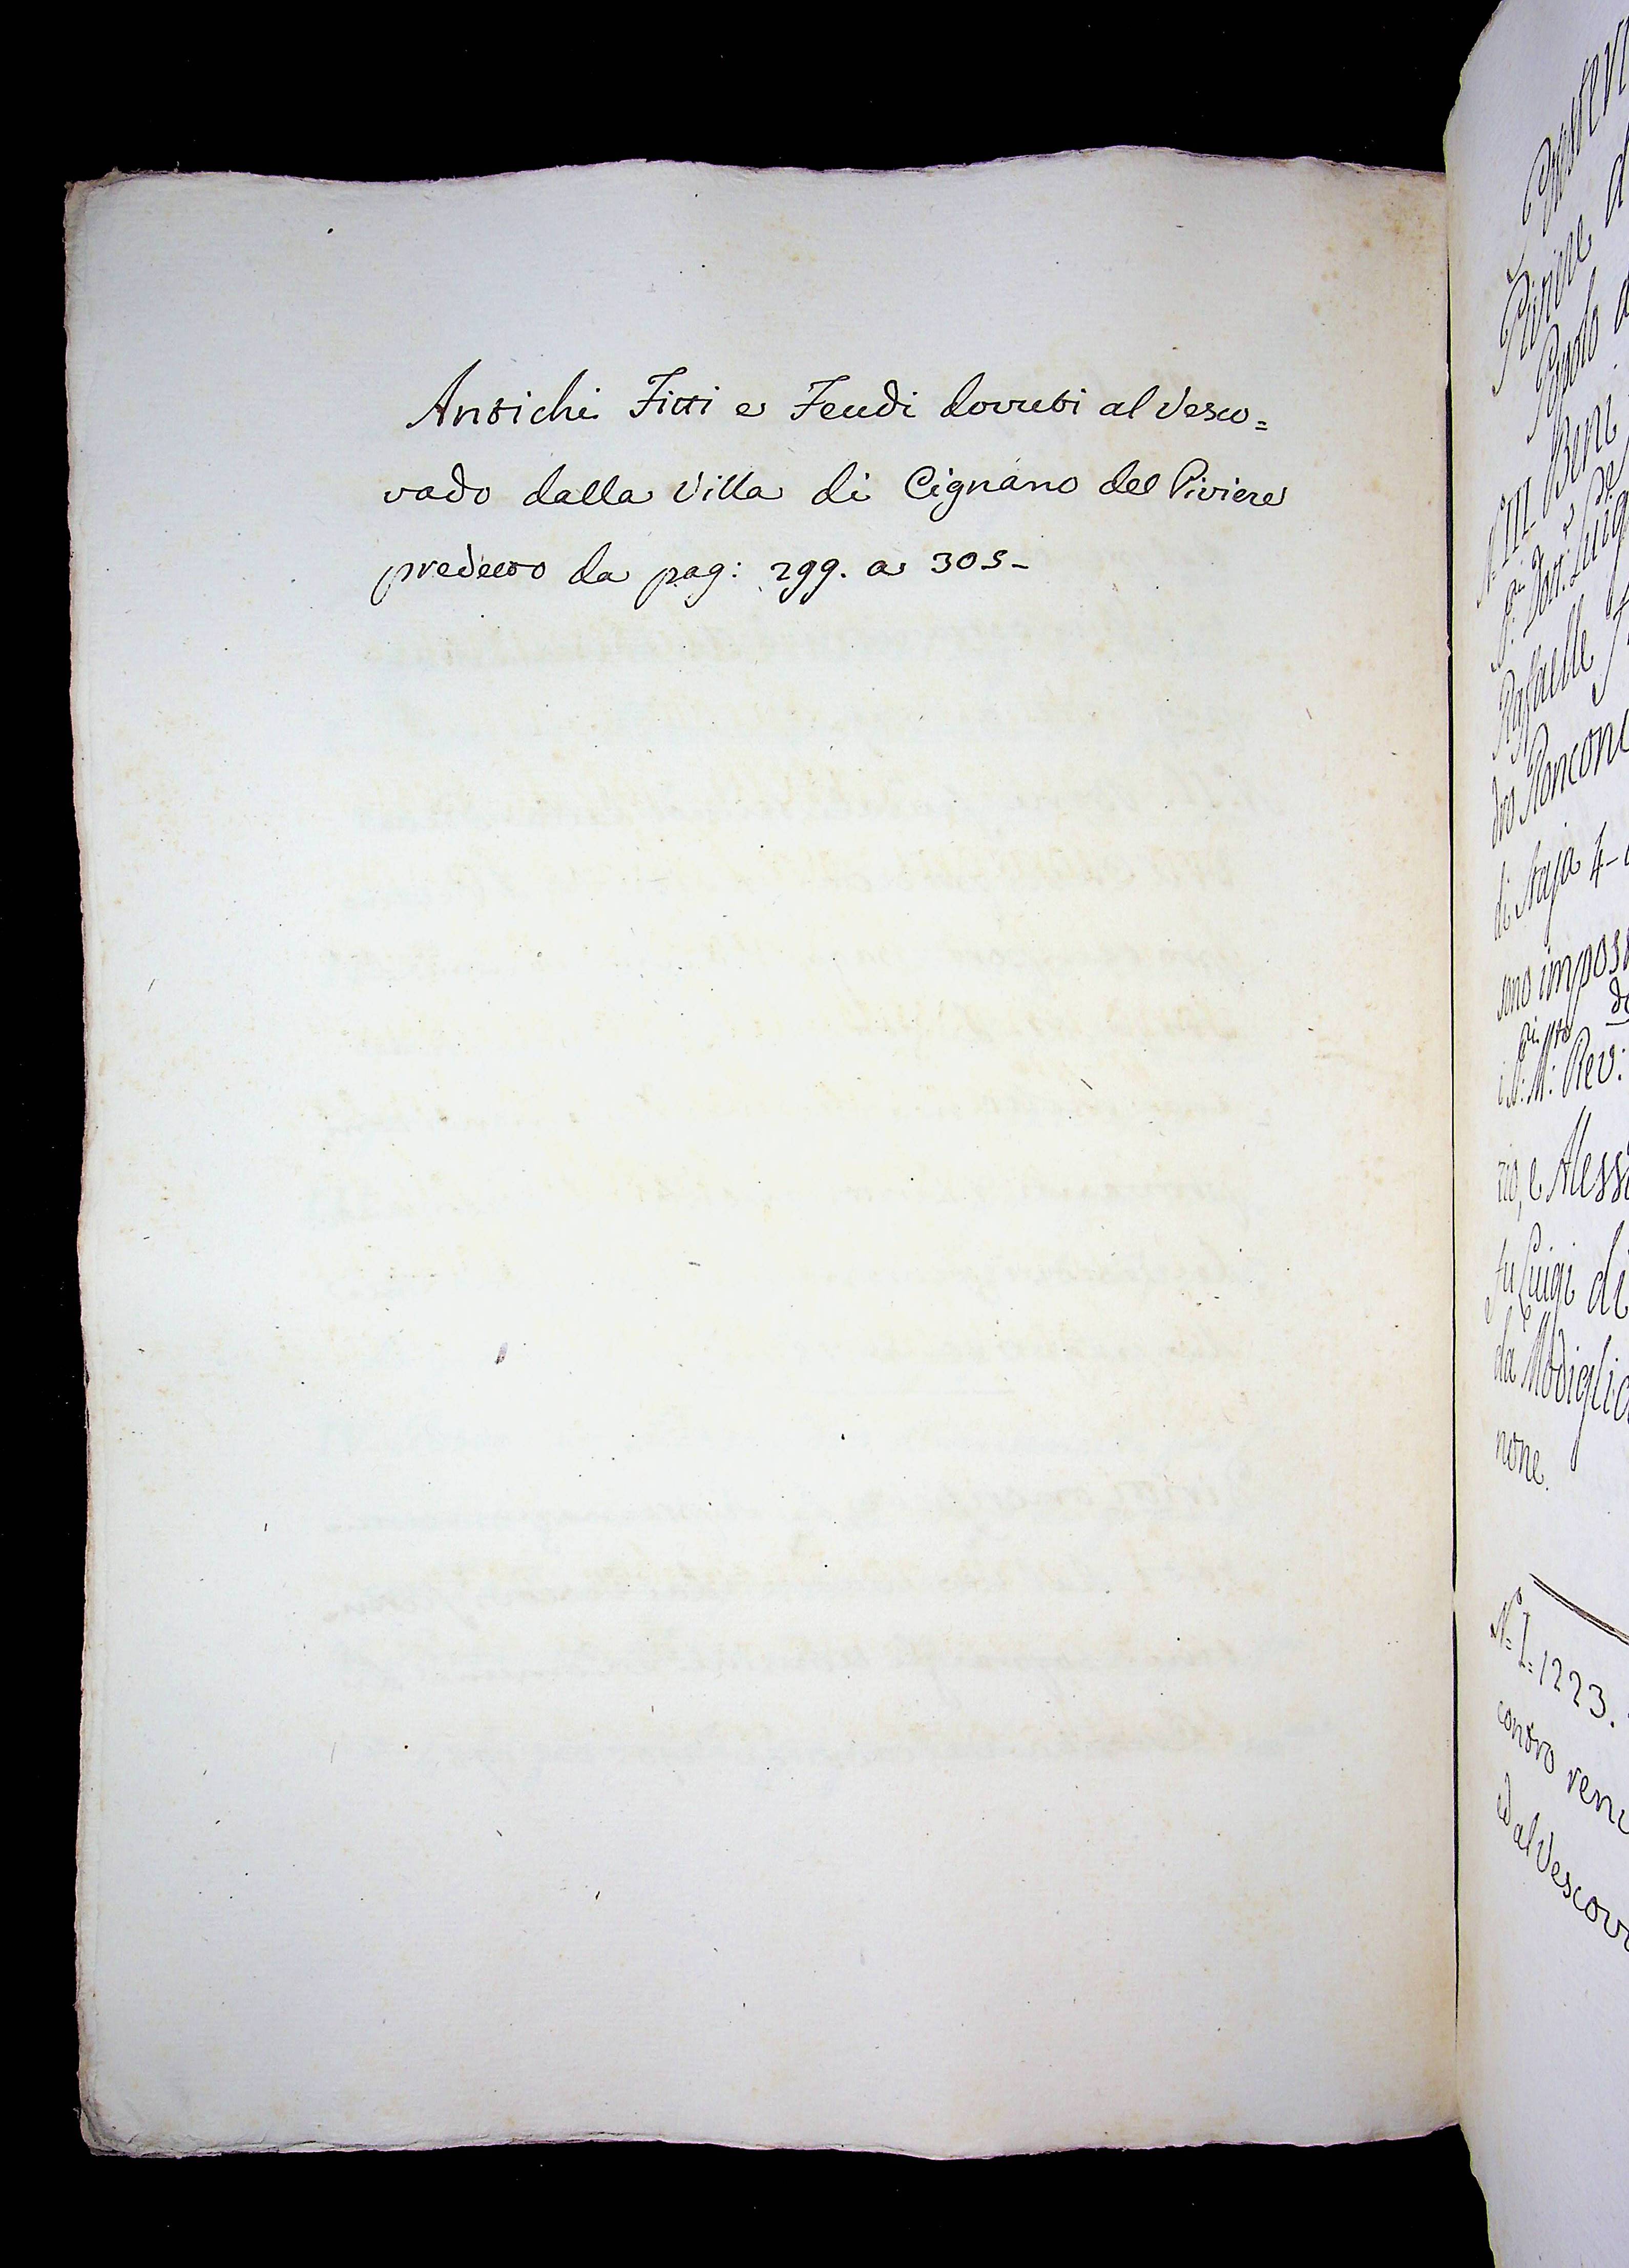 Antichi Fitti e Feudi dovuti al Vesco=
vado dalla Villa di Cignano del Piviere
predetto da pag: 299. a 305-
Piviere
Popolo
N. III. Beni
Dott: Luig
Raffaelle
dro Ronconi
di Staja 4-
sono imposs
Rev:
zio, e Aless
fu Luigi di
da Modiglia
none.
N. I. 1223.
contro
ed al Vescov